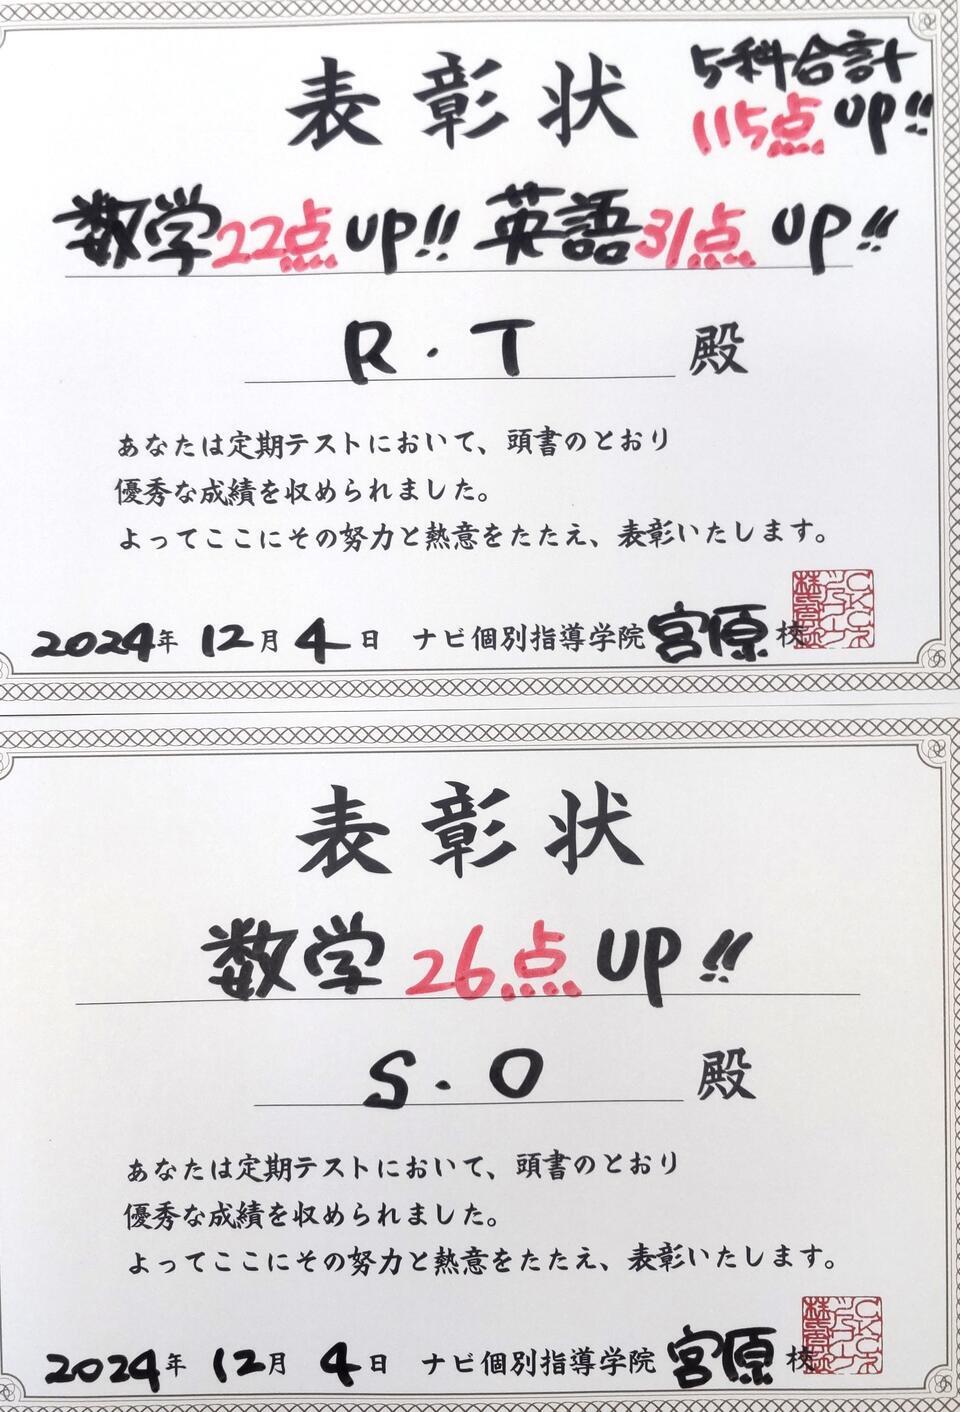 表彰状
5科合計
115点UP!!
数学22点UP!! 英語31点UP!!
R・T 殿
あなたは定期テストにおいて、頭書のとおり
優秀な成績を収められました。
よってここにその努力と熱意をたたえ、表彰いたします。
2024年 12月 4日 ナビ個別指導学院 宮原 校
表彰状
数学 26点UP!!
S・O 殿
あなたは定期テストにおいて、頭書のとおり
優秀な成績を収められました。
よってここにその努力と熱意をたたえ、表彰いたします。
2024年 12月 4日 ナビ個別指導学院 宮原 校